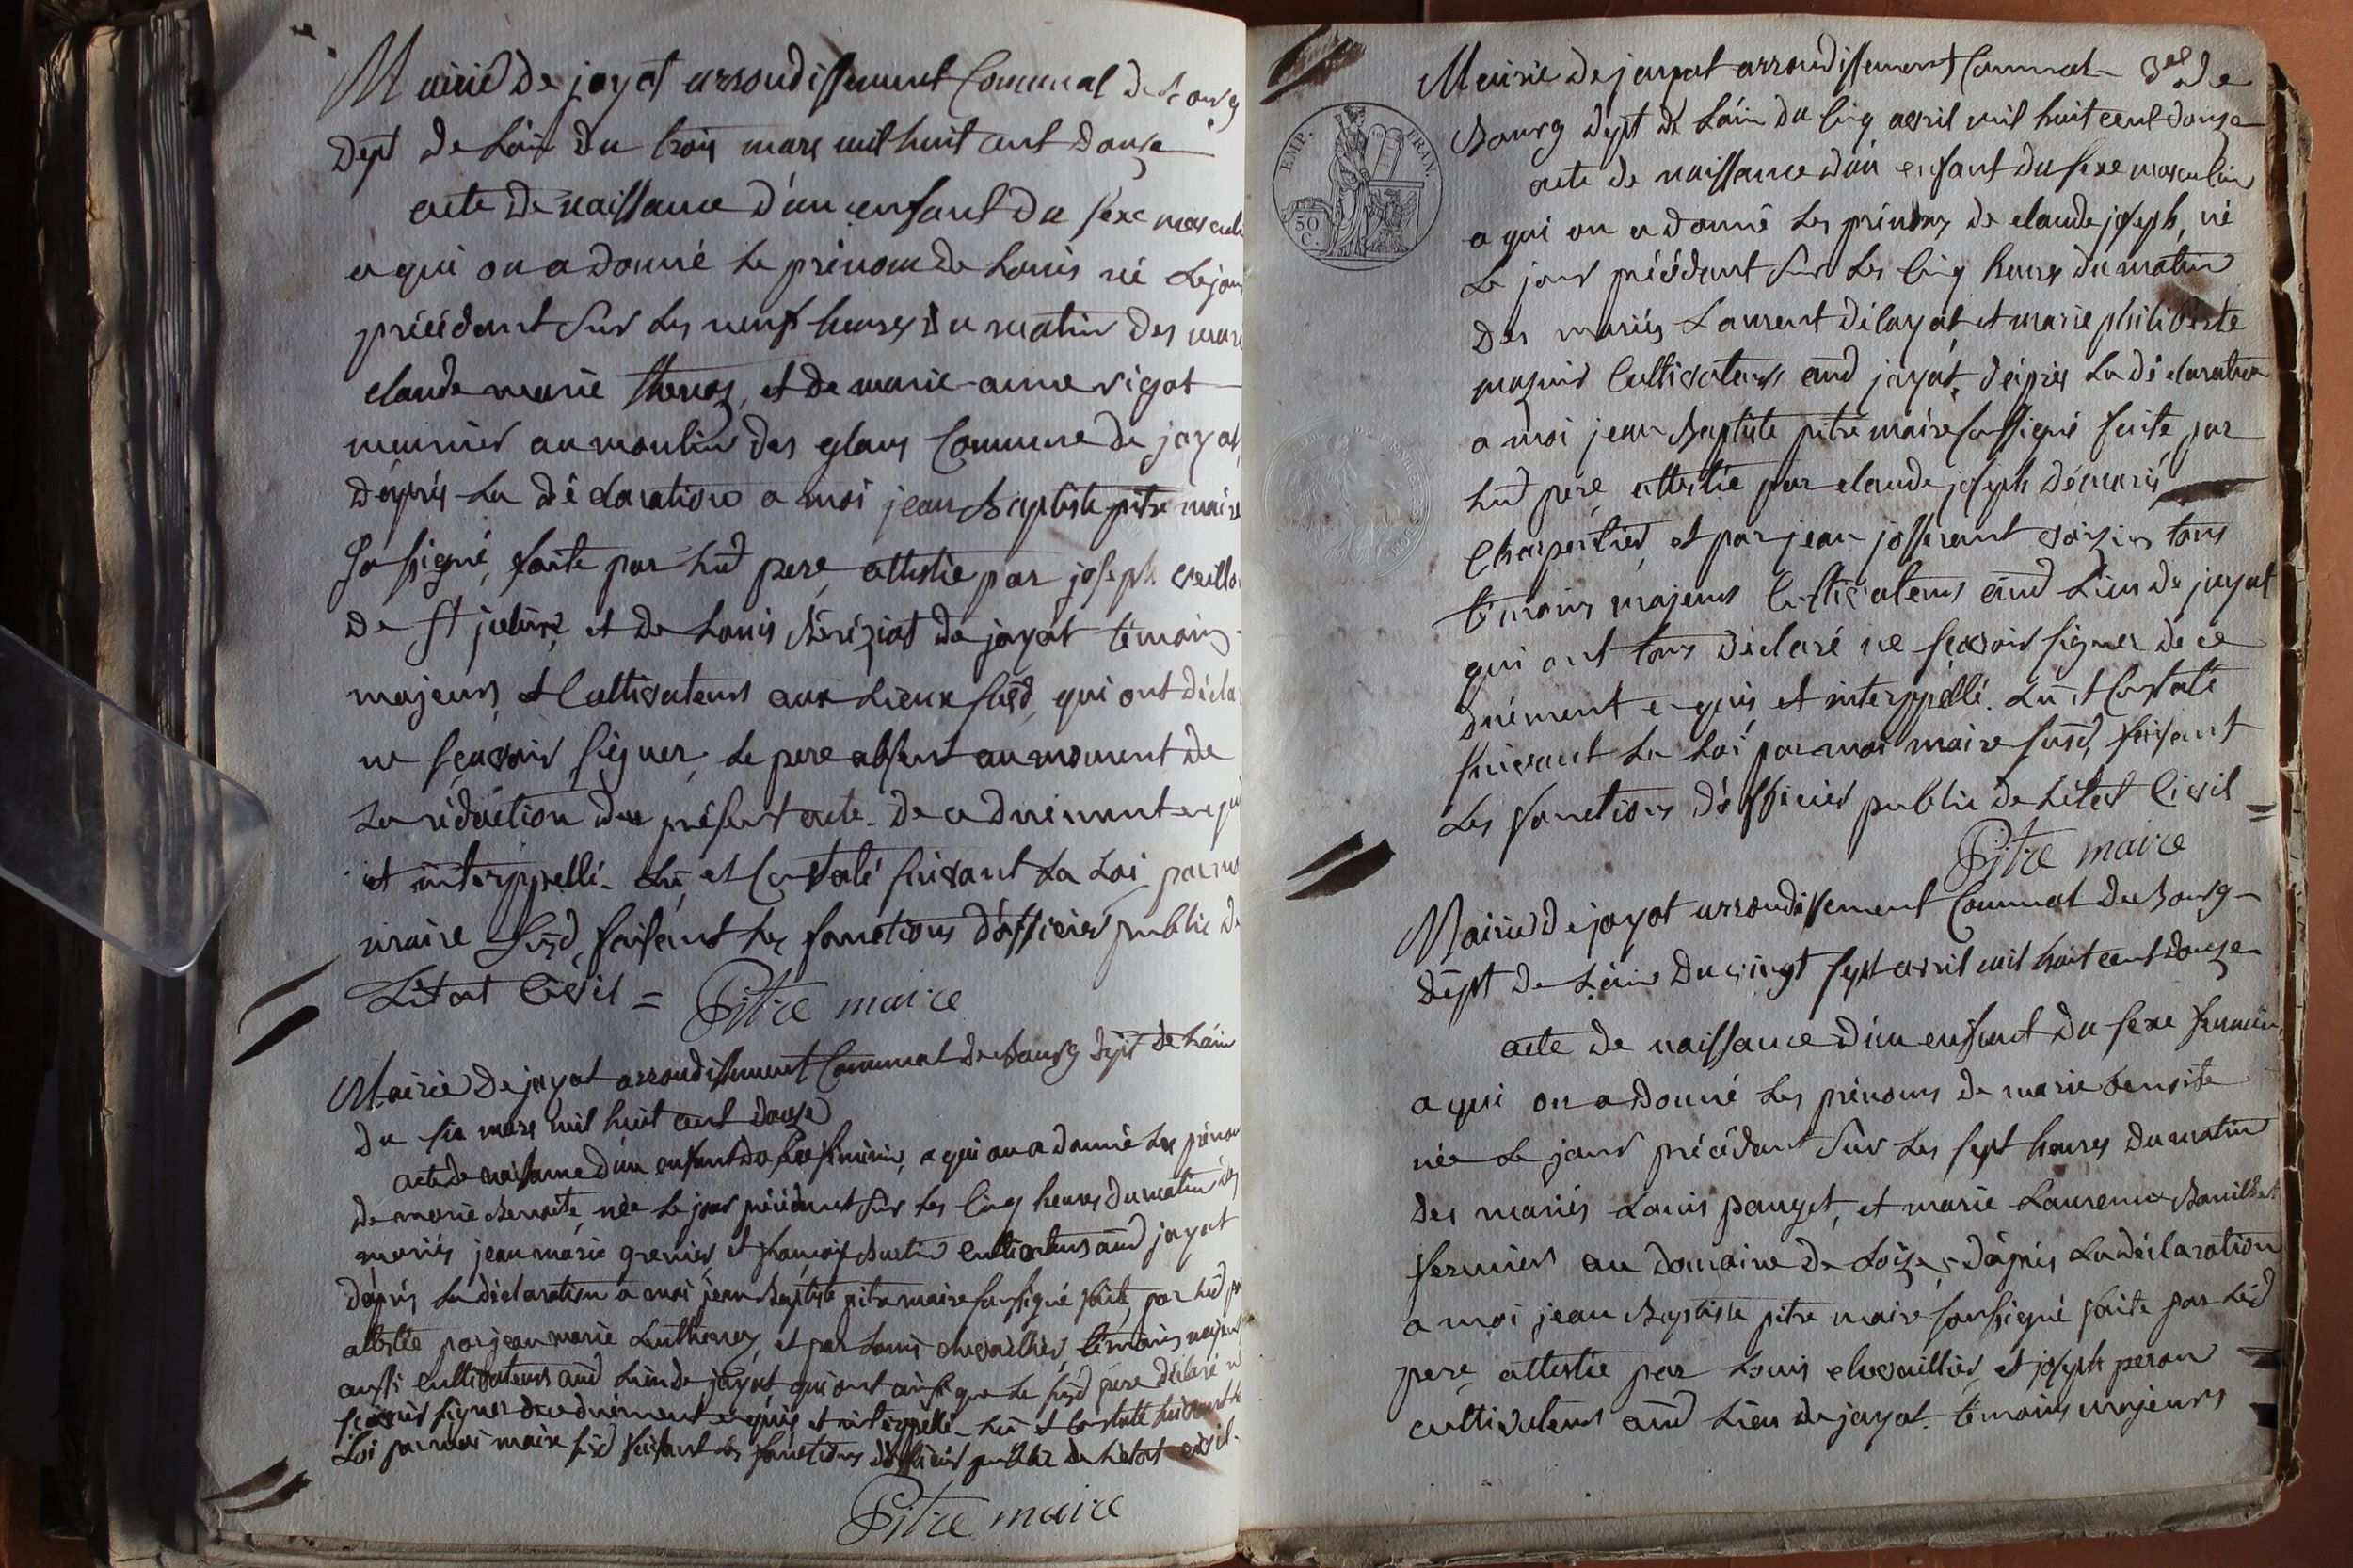 Mairie de jayat arrondissement Communal de Bourg
Dept de L'ain du trois mars mil huit cent douze
acte de naissance d'un enfant du sexe mascul
a qui on a donné le prénom de Louis né le jour
précédant sur les neuf heures du matin des mari
claude marie et de marie-anne rigot
meunier au moulin des glaus Commune de jayat
d'après la déclaration a moi jean Baptiste pitre maire
sousigné, faite par led pere attestée par joseph
de st julien et de Louis Bereziat de jayat témoins
majeurs et Cultivateurs aux Lieux susd, qui ont décla
ne sçavoir signer, le pere absent au moment de
la rédaction du présent acte. De ce duement
et interppellé. Lu et Constaté suivant la Loi, par
maire susd, faisant les fonctions d'officier public de
L'état Civil = Pitre maire
Mairie de jayat arrondissement Communal de Bourg Dept de L'ain
du six mars mil huit cent douze
acte de naissance d'un enfant du sexe féminin, a qui on a donné les prénom
de marie Benoite, née le jour précédant sur les Cinq heures du matin des
mariés jean marie grenier, et Burtin Cultivateurs aud jayat
d'après la déclaration a moi jean Baptiste pitre maire sousigné faite par led
attestée par jean marie et par Louis chevaillier témoins majeurs
aussi Cultivateurs aud Lieu de jayat qui ont ainsi que le susd pere déclaré ne
sçavoir signer de ce duement enquis et interppellé. Lu et Constaté suivant la
Loi par moi maire susd faisant les fonctions d'officier public de L'état civil.
Pitre maire
Mairie de jayat arrondissement Communal de
Bourg dept de L'ain du Cinq avril mil huit cent douze
acte de naissance d'un enfant du sexe masculin
a qui on a donné les prénoms de claude joseph, né
le jour précédant sur les Cinq heures du matin
des mariés Laurent délayat et marie philiberte
Cultivateurs aud jayat, d'après la déclaration
a moi jean Baptiste pitre maire sousigné faite par
led pere attestée par claude joseph
Charpentier, et par jean josserant voisins tous
témoins majeurs Cultivateurs aud Lieu de jayat
qui ont tous déclaré ne sçavoir signer de ce
duement enquis et interppellé. Lu et Constaté
suivant la Loi par moi maire susd, faisant
les fonctions d'officier public de L'état Civil =
Pitre maire
EMP. FRAN.
50 C.
Mairie de jayat arrondissement Communal de Bourg
dept de L'ain du vingt sept avril mil huit cent douze
acte de naissance d'un enfant du sexe feminin
a qui on a donné les prénoms de marie benoite
née le jour précédant sur les sept heures du matin
des mariés Louis pauget, et marie Laurence
fermier au domaine de Loize, d'après la déclaration
a moi jean Baptiste pitre maire sousigné faite par led
pere, attestée par Louis chevaillier, et joseph peron
cultivateurs aud Lieu de jayat témoins majeurs